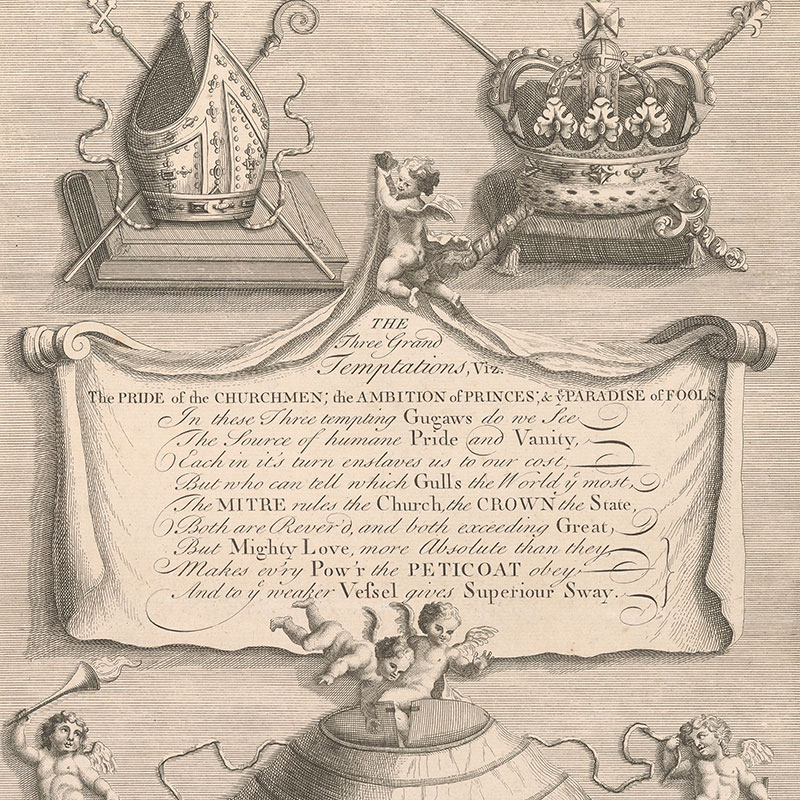 THE
Three Grand
Temptations, Viz.
The PRIDE of the CHURCHMEN; the AMBITION of PRINCES; & ẙ PARADISE of FOOLS.
In these Three tempting Gugaws do we See
The Source of humane Pride and Vanity,
Each in it's turn enslaves us to our cost,
But who can tell which Gulls the World ẙ most,
The MITRE rules the Church, the CROWN the State,
Both are Rever'd, and both exceeding Great,
But Mighty Love, more Absolute than they
Makes ev'ry Pow'r the PETICOAT obey.
And to ẙ weaker Veſsel gives Superiour Sway.